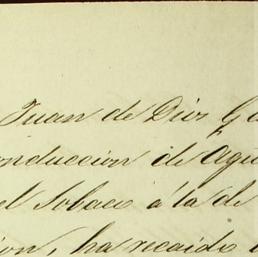 Juan de Dios Ga
onduccion de Agu
el Sobaco á la de
ion, ha recaido